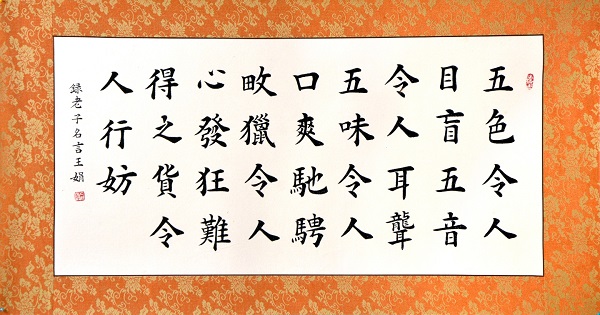 五色令人
目盲五音
令人耳聾
五味令人
口爽馳騁
畋獵令人
心發狂難
得之貨令
人行妨
錄老子名言王娟